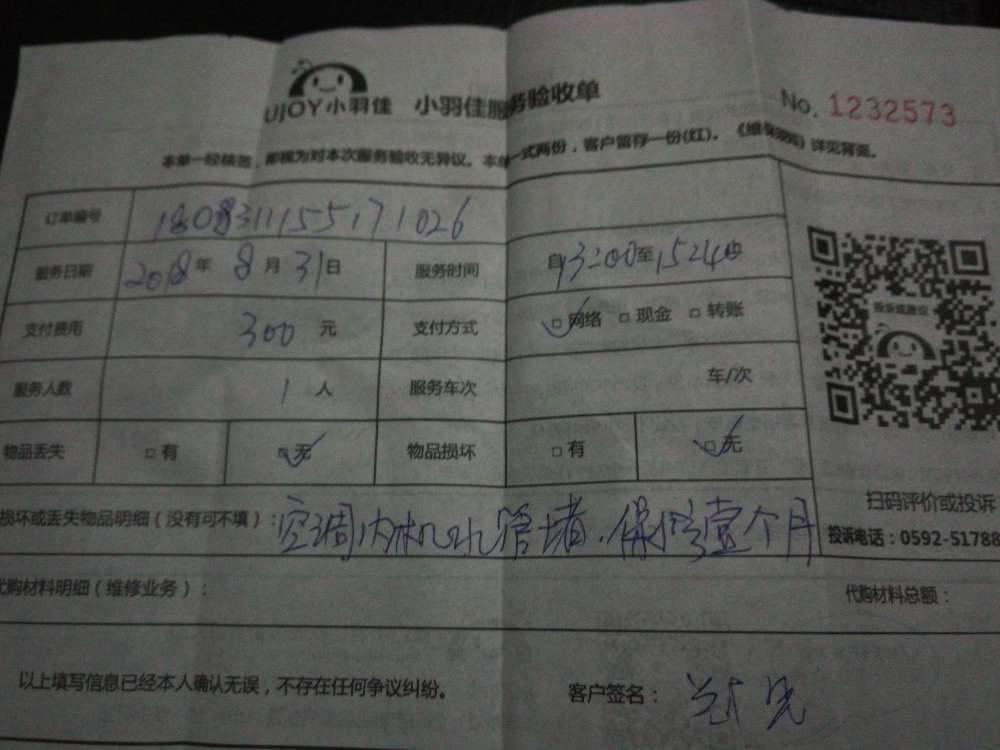 UJOY小羽佳 小羽佳服务验收单
No. 1232573
本单一经核签，即视为对本次服务验收无异议。本单一式两份，客户留存一份(红)。《维保须知》详见背面。
订单编号 180831115517 1026
服务日期 2018年 8月 31日 服务时间 自13:00至15240
支付费用 300 元 支付方式 □网络 □现金 □转账
服务人数 1 人 服务车次 车/次
物品丢失 □有 □无 物品损坏 □有 □无
投诉或建议
扫码评价或投诉
投诉电话：0592-51788
损坏或丢失物品明细（没有可不填）：空调内机水管堵.保修壹个月
代购材料明细（维修业务）： 代购材料总额：
以上填写信息已经本人确认无误，不存在任何争议纠纷。 客户签名：